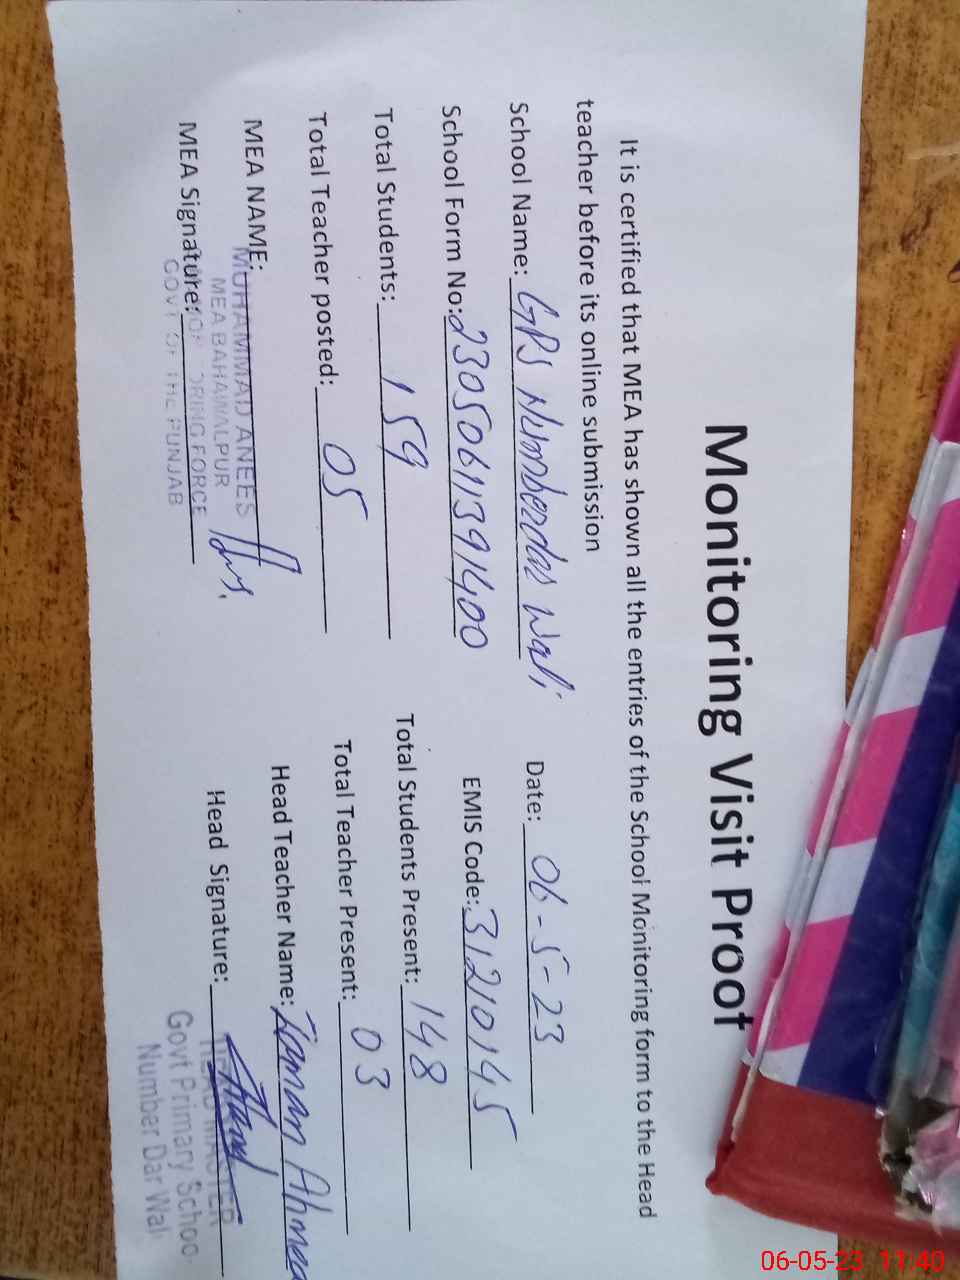 Monitoring Visit Proof
It is certified that MEA has shown all the entries of the School Monitoring form to the Head
teacher before its online submission
School Name: GPS Numberdar Wali Date: 06-5-23
School Form No: 23050611391400 EMIS Code: 31210145
Total Students: 159 Total Students Present: 148
Total Teacher posted: 05 Total Teacher Present: 03
MEA NAME: Head Teacher Name: Zaman Ahmad
MUHAMMAD ANEES
MEA BAHAWALPUR
MEA Signature: Head Signature:
FORCE
GOVT OF THE PUNJAB
HEAD MASTER
Govt Primary Schoo
Number Dar Wal
06-05-23 11:40